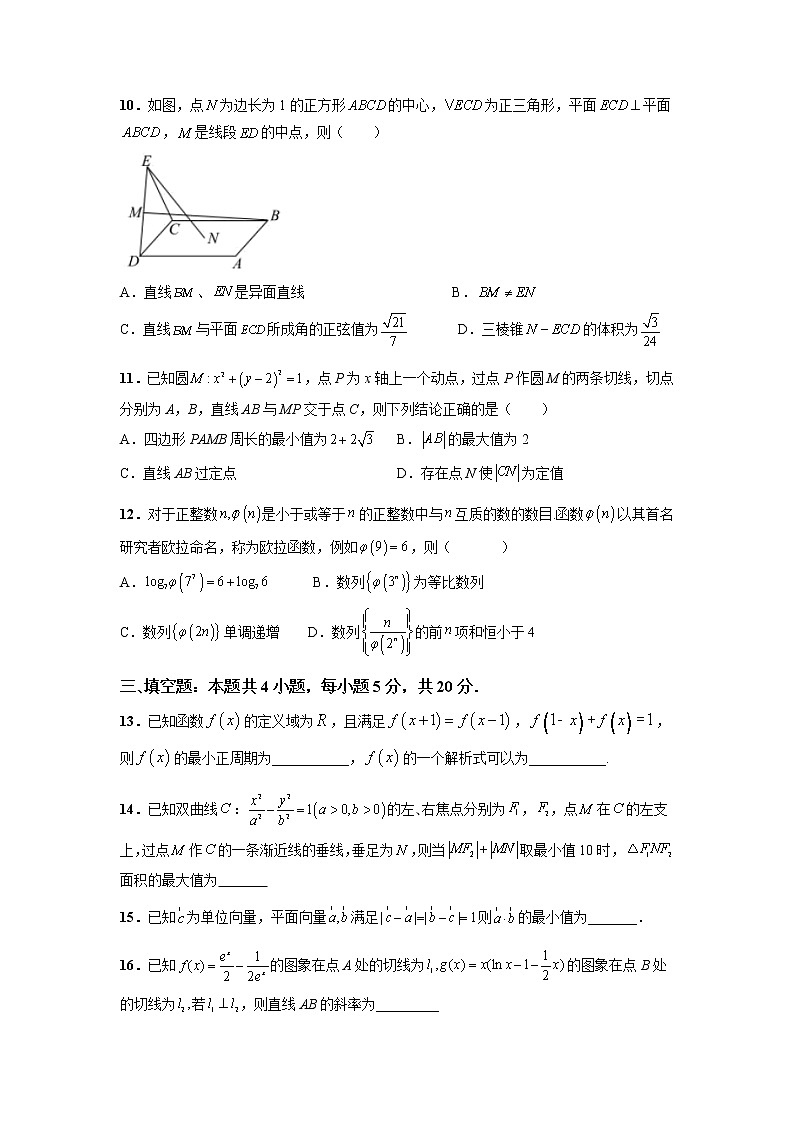 10．如图，点N为边长为1的正方形ABCD的中心，VECD为正三角形，平面ECD⊥平面
ABCD，M是线段ED的中点，则（　　）
E
M
B
C
N
D
A
A．直线BM、EN是异面直线　　B．BM≠EN
C．直线BM与平面ECD所成角的正弦值为√21/7　　D．三棱锥N−ECD的体积为√3/24
11．已知圆M:x²+(y−2)²=1，点P为x轴上一个动点，过点P作圆M的两条切线，切点
分别为A，B，直线AB与MP交于点C，则下列结论正确的是（　　）
A．四边形PAMB周长的最小值为2+2√3　　B．|AB|的最大值为2
C．直线AB过定点　　D．存在点N使|CN|为定值
12．对于正整数n,φ(n)是小于或等于n的正整数中与n互质的数的数目.函数φ(n)以其首名
研究者欧拉命名，称为欧拉函数，例如φ(9)=6，则（　　）
A．log₇φ(7⁷)=6+log₇6　　B．数列{φ(3ⁿ)}为等比数列
C．数列{φ(2n)}单调递增　　D．数列{n/φ(2ⁿ)}的前n项和恒小于4
三、填空题：本题共4小题，每小题5分，共20分．
13．已知函数f(x)的定义域为R，且满足f(x+1)=f(x−1)，f(1-x)+f(x)=1，
则f(x)的最小正周期为___________，f(x)的一个解析式可以为___________.
14．已知双曲线C：x²/a²−y²/b²=1(a>0,b>0)的左、右焦点分别为F₁，F₂，点M在C的左支
上，过点M作C的一条渐近线的垂线，垂足为N，则当|MF₂|+|MN|取最小值10时，△F₁NF₂
面积的最大值为_______
15．已知c为单位向量，平面向量a,b满足|c−a|=|b−c|=1则a·b的最小值为_______．
16．已知f(x)=eˣ/2−1/2eˣ的图象在点A处的切线为l₁,g(x)=x(ln x−1−1/2x)的图象在点B处
的切线为l₂,若l₁⊥l₂，则直线AB的斜率为_________